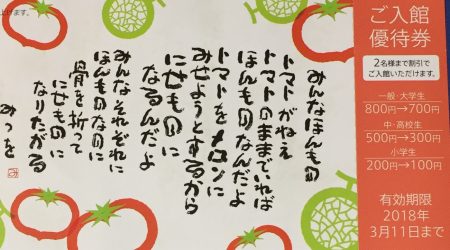 みんなほんもの
トマトがねえ
トマトのままでいれば
ほんものなんだよ
トマトをメロンに
みせようとするから
にせものに
なるんだよ
みんなそれぞれに
ほんものなのに
骨を折って
にせものに
なりたがる
みつを
ご入館
優待券
2名様まで割引で
ご入館いただけます。
一般・大学生
800円→700円
中・高校生
500円→300円
小学生
200円→100円
有効期限
2018年
3月11日まで